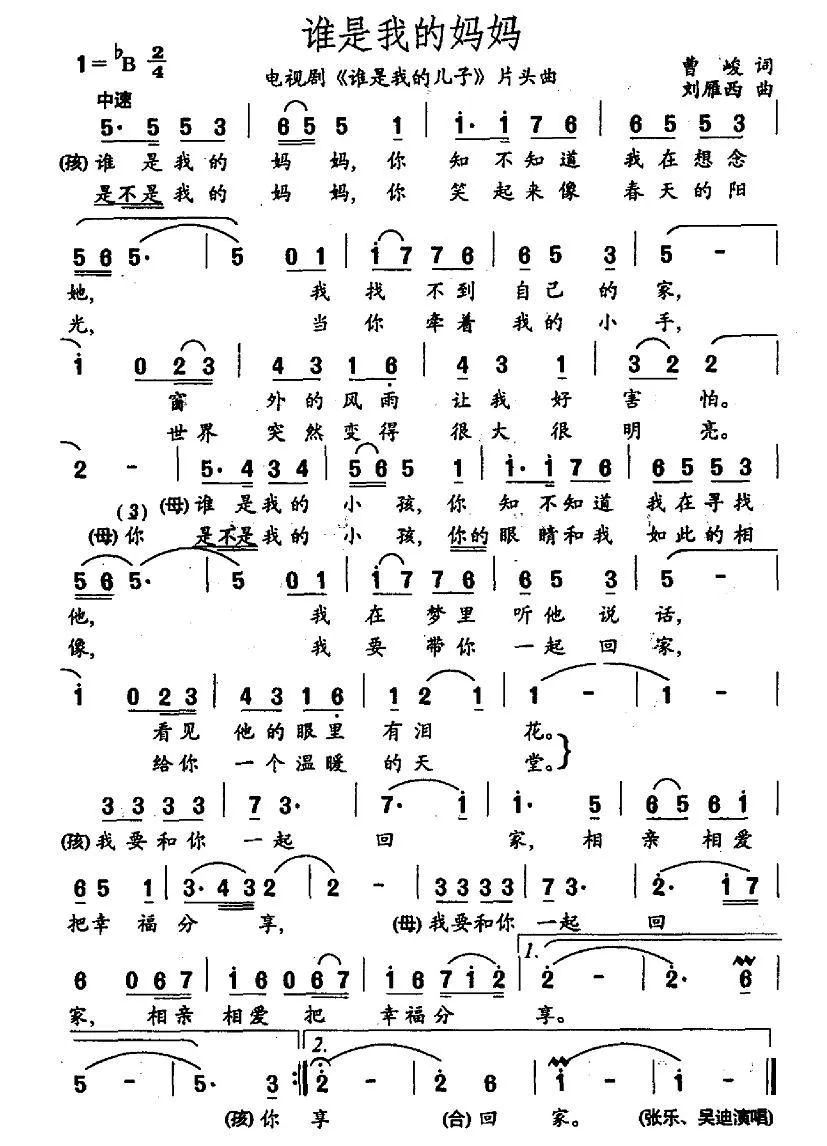 谁是我的妈妈
1=♭B 2/4
电视剧《谁是我的儿子》片头曲
曹 峻 词
刘雁西 曲
中速
5· 5 5 3 | 6 5 5 1 | i· i 7 6 | 6 5 5 3 |
(孩)谁 是 我 的 妈 妈, 你 知 不 知 道 我 在 想 念
是不是 我 的 妈 妈, 你 笑 起 来 像 春 天 的 阳
5 6 5· | 5 0 1 | i 7 7 6 | 6 5 3 | 5 - |
她, 我 找 不 到 自 己 的 家,
光, 当 你 牵 着 我 的 小 手,
i 0 2 3 | 4 3 1 6 | 4 3 1 | 3 2 2 |
窗 外 的 风 雨 让 我 好 害 怕。
世 界 突 然 变 得 很 大 很 明 亮。
2 - | 5· 4 3 4 | 5 6 5 1 | i· i 7 6 | 6 5 5 3 |
(3) (母)谁 是 我 的 小 孩, 你 知 不 知 道 我 在 寻 找
(母)你 是不是 我 的 小 孩, 你的 眼 睛 和 我 如 此 的 相
5 6 5· | 5 0 1 | i 7 7 6 | 6 5 3 | 5 - |
他, 我 在 梦 里 听 他 说 话,
像, 我 要 带 你 一 起 回 家,
i 0 2 3 | 4 3 1 6 | 1 2 1 | 1 - | 1 - |
看 见 他 的 眼 里 有 泪 花。
给 你 一 个 温 暖 的 天 堂。
3 3 3 3 | 7 3· | 7· i | i· 5 | 6 5 6 i |
(孩)我 要 和 你 一 起 回 家, 相 亲 相 爱
6 5 1 | 3· 4 3 2 | 2 - | 3 3 3 3 | 7 3· | 2· i 7 |
把 幸 福 分 享, (母)我 要 和 你 一 起 回
1.
6 0 6 7 | i 6 0 6 7 | i 6 7 i 2 | 2 - | 2· 6 |
家, 相 亲 相 爱 把 幸 福 分 享。
2.
5 - | 5· 3 :| 2 - | 2 6 | i - | i - |
(孩)你 享 (合)回 家。 (张乐、吴迪演唱)